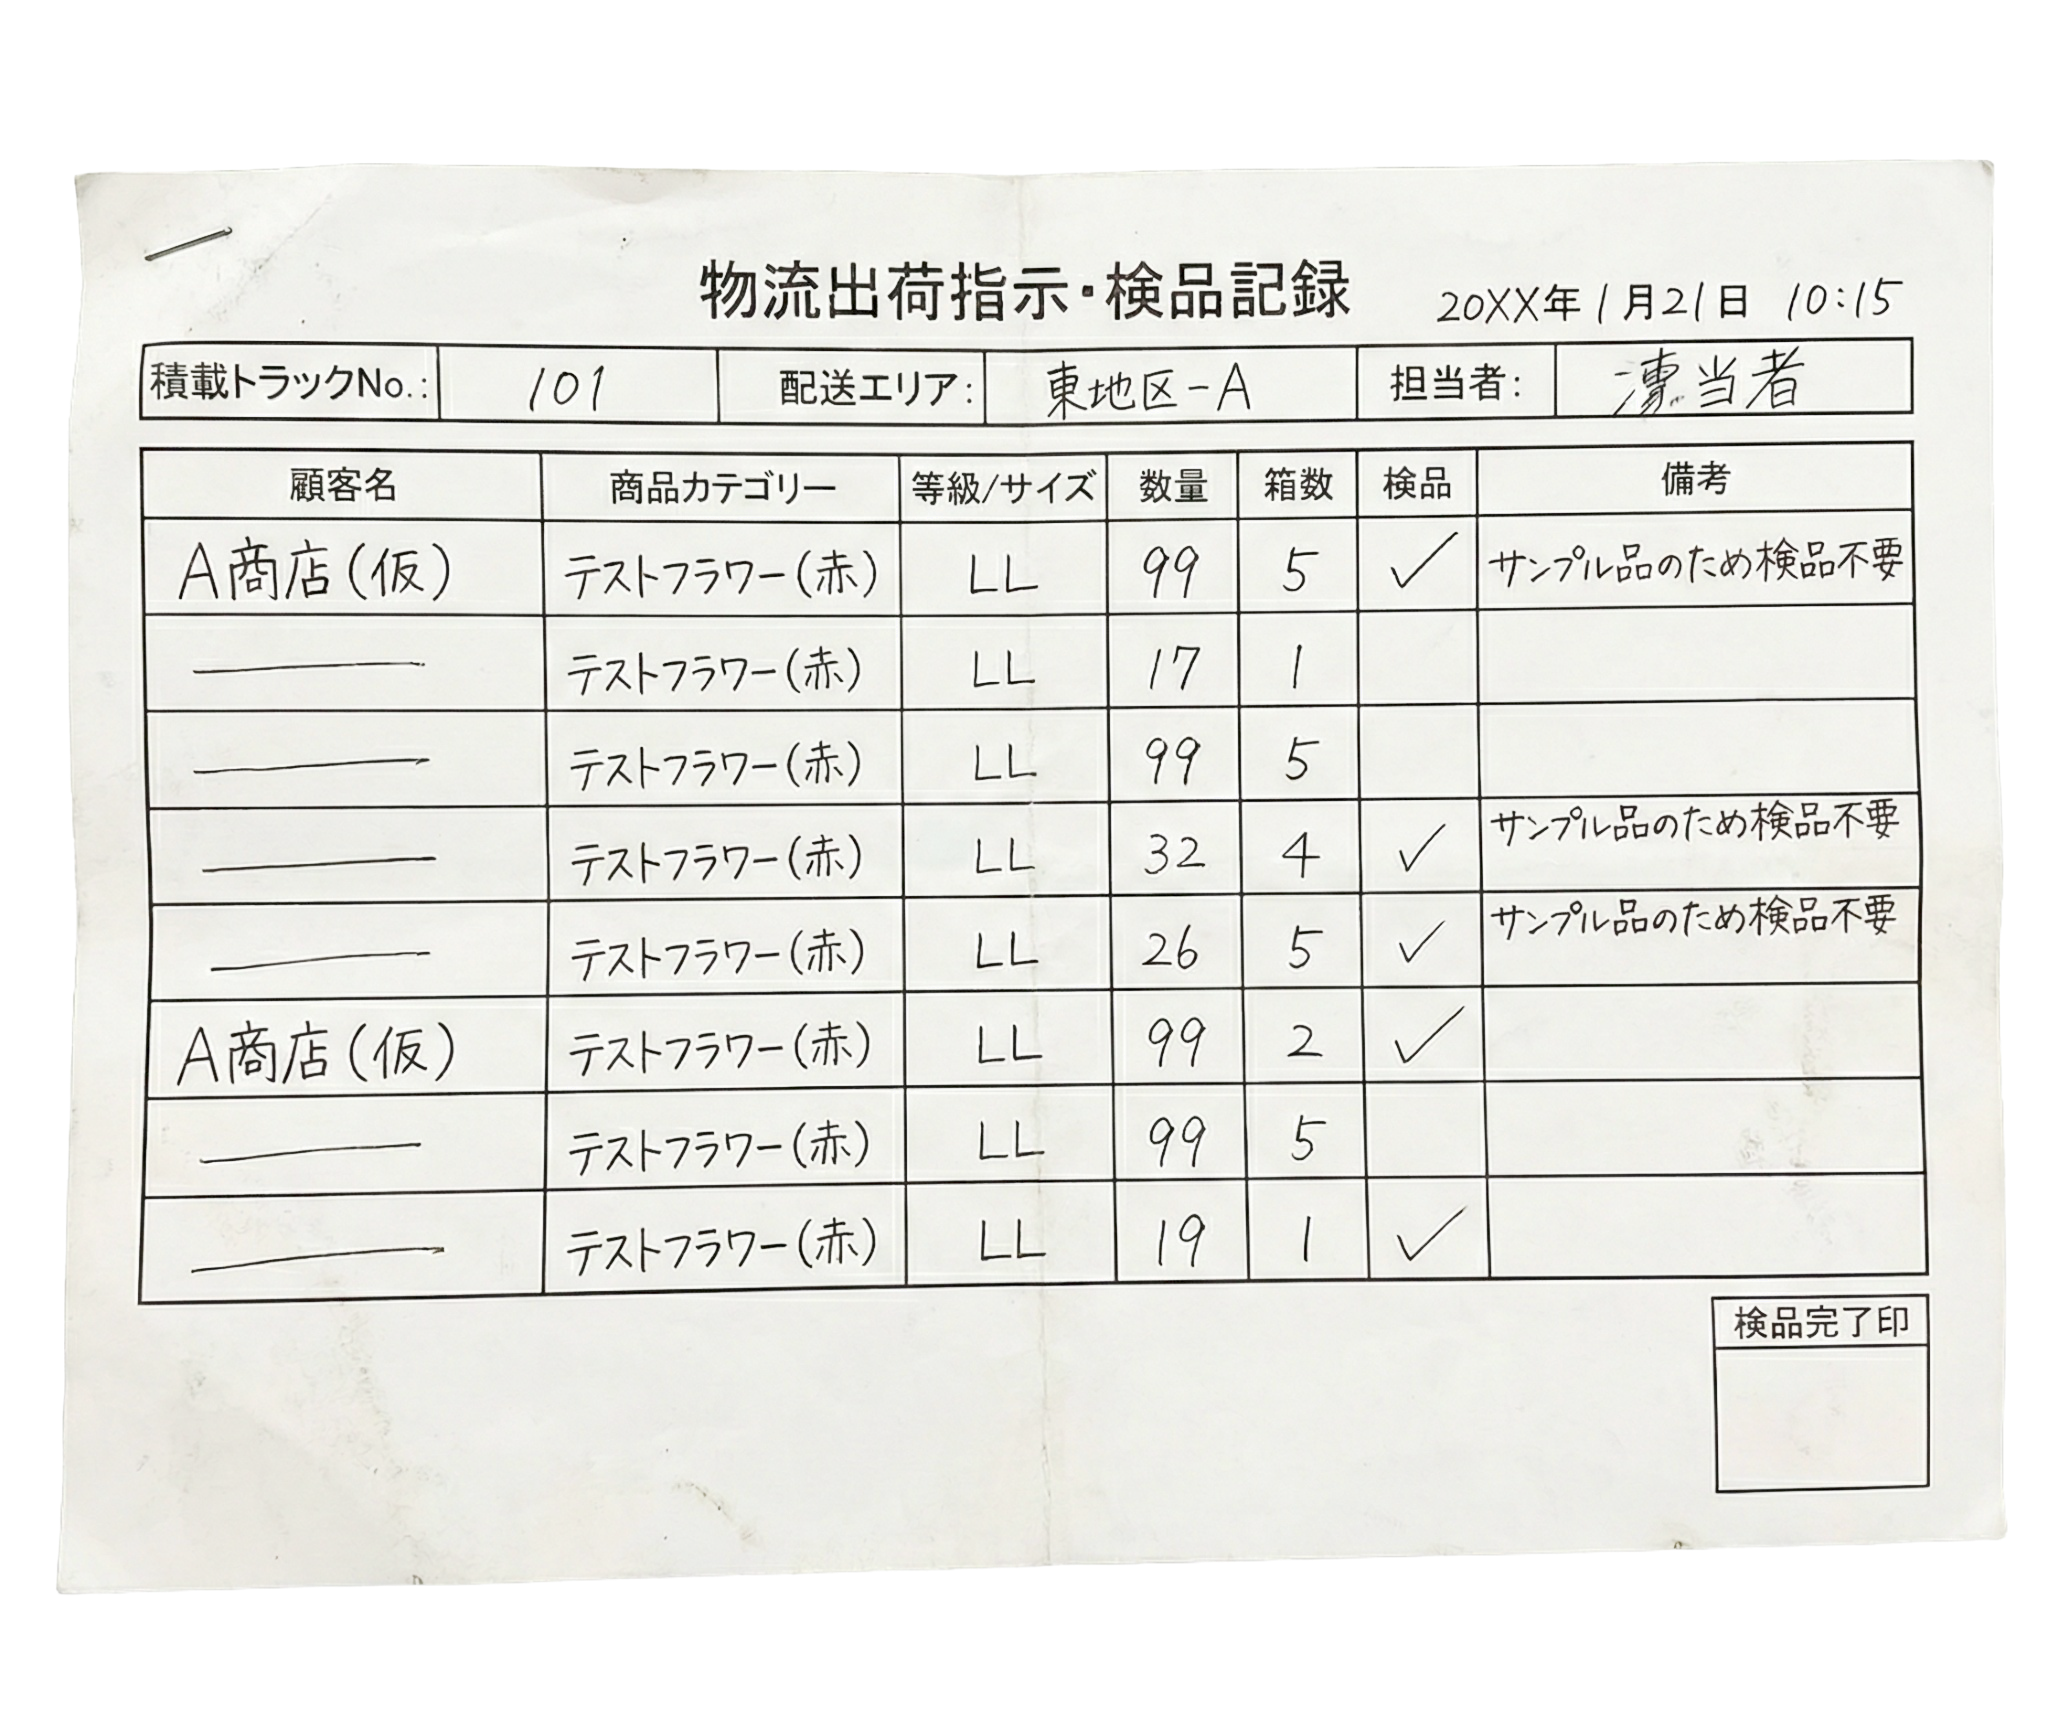 物流出荷指示・検品記録 20XX年1月21日 10:15
積載トラックNo.: 101 配送エリア: 東地区-A 担当者: 当者
顧客名 商品カテゴリー 等級/サイズ 数量 箱数 検品 備考
A商店(仮) テストフラワー(赤) LL 99 5 ✓ サンプル品のため検品不要
— テストフラワー(赤) LL 17 1
— テストフラワー(赤) LL 99 5
— テストフラワー(赤) LL 32 4 ✓ サンプル品のため検品不要
— テストフラワー(赤) LL 26 5 ✓ サンプル品のため検品不要
A商店(仮) テストフラワー(赤) LL 99 2 ✓
— テストフラワー(赤) LL 99 5
— テストフラワー(赤) LL 19 1 ✓
検品完了印